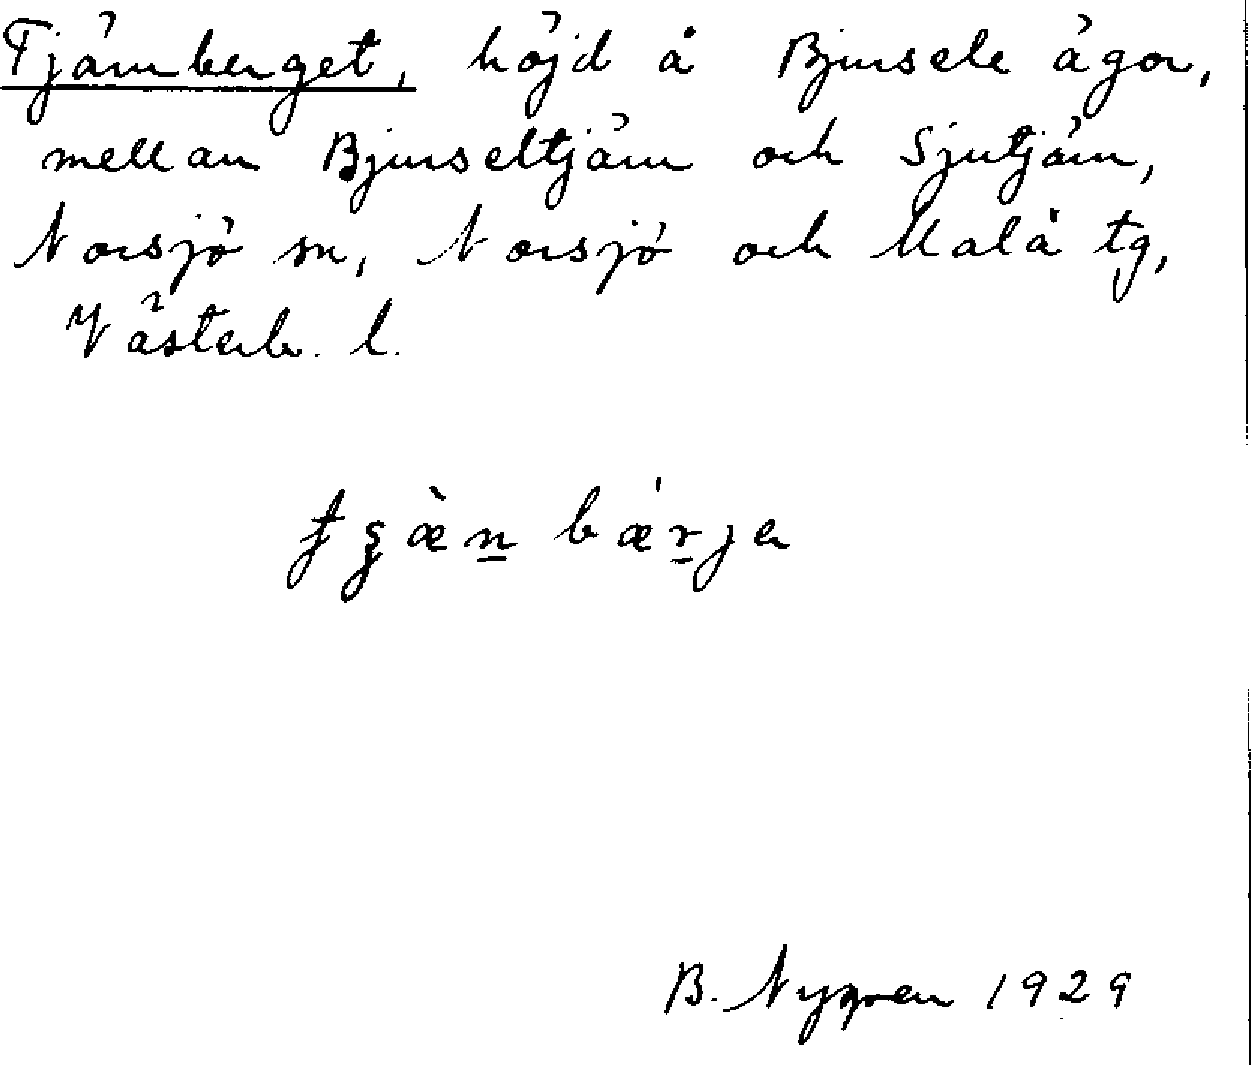 Tjärnberget, höjd å Bjursele ägor,
mellan Bjurseltjärn och Sjutjärn,
Norsjö sn, Norsjö och Malå tg,
Västerb. l.
B. Nygren 1929